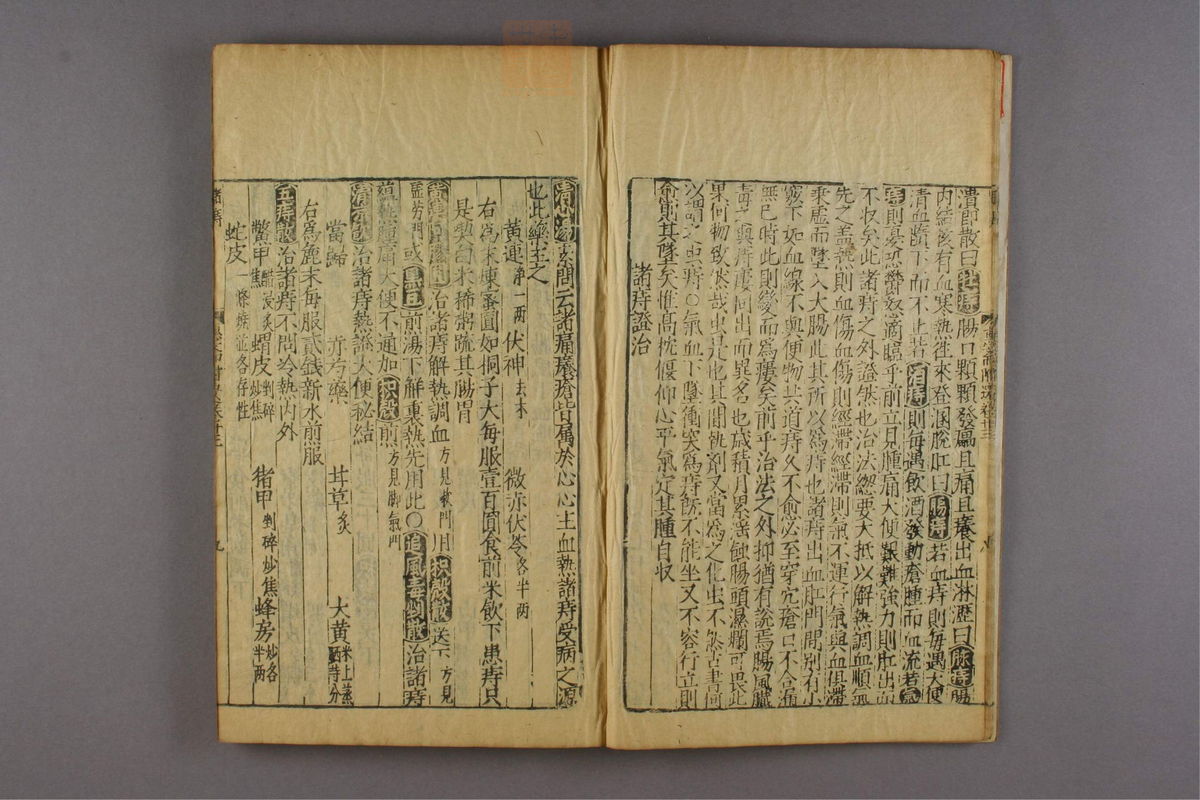 潰即散曰牡痔腸口顆顆發癟且痛且癢出血淋瀝曰脉痔腸
内結核有血寒熱往來登溷脫肛曰腸痔若血痔則每遇大便
清血隨下而不止若酒痔則每遇飲酒發動瘡腫而血流若氣
痔則憂恐鬱怒適臨乎前立見腫痛大便艱難強力則肛出而
不收矣此諸痔之外證然也治法緫要大抵以解熱調血順氣
先之盖熱則血傷血傷則經滯經滯則氣不運行氣與血俱滯
乗虛而墜入大腸此其所以為痔也諸痔出血肛門間别有小
竅下如血線不與便物共道痔久不愈必至穿穴瘡口不合漏
無已時此則變而為瘻矣前乎治法之外抑猶有說焉腸風臓
毒之與痔瘻同出而異名也歲積月累淫蝕腸頭濕爛可畏此
果何物致然哉虫是也其間執劑又當為之化虫不然古書何
以謂之虫痔○氣血下墜衝突為痔既不能坐又不容行立則
愈則其墜矣惟高枕偃仰心平氣定其腫自收
諸痔證治
清心湯素問云諸痛癢瘡皆屬於心心主血熱諸痔受病之源
也此藥主之
黃連淨一兩 伏神去木 微赤伏苓各半兩
右為末煉蜜圓如桐子大每服壹百圓食前米飲下患痔只
是喫白米稀粥疏其腸胃
治諸痔解熱調血方見 門用枳殼散送下方見
芎門或黑豆前湯下解裏熱先用此○追風毒剉散治諸痔
痛大便不通加枳殼煎方見脚氣門
清 散治諸痔熱證大便秘結
當歸 赤芍藥 甘草炙 大黃米上蒸晒等分
右為麄末每服貳錢新水煎服
五痔散治諸痔不問冷熱内外
鱉甲醋浸炙焦 蝟皮剉碎炒焦 猪甲剉碎炒焦 蜂房炒各半兩
蛇皮一條燒並各存性
諸痔
九